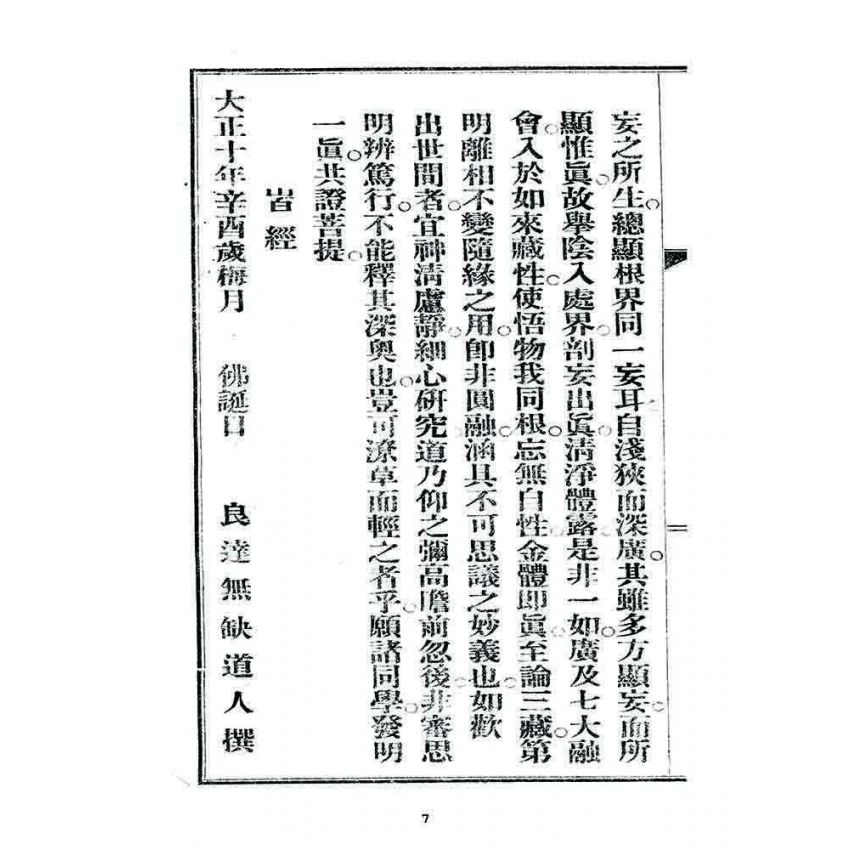 妄之所生。總顯根界同一妄耳自淺狹而深廣。其雖多方顯妄。而所
顯惟眞。故舉陰入處界。剖妄出眞。清淨體露。是非一如。廣及七大融
會。入於如來藏性。使悟物我同根。忘無自性。金體即眞。至論三藏。第
明離相不變隨緣之用。卽非圓融涵具不可思議之妙義也。如歡
出世間者。宜神清慮靜。細心研究道乃仰之彌高瞻前忽後。非審思
明辨篤行。不能釋其深奧也。豈可潦草而輕之者乎。願諸同學。發明
一眞。共證菩提。
旹經
大正十年辛酉歲梅月 佛誕日 良達無缺道人撰
7